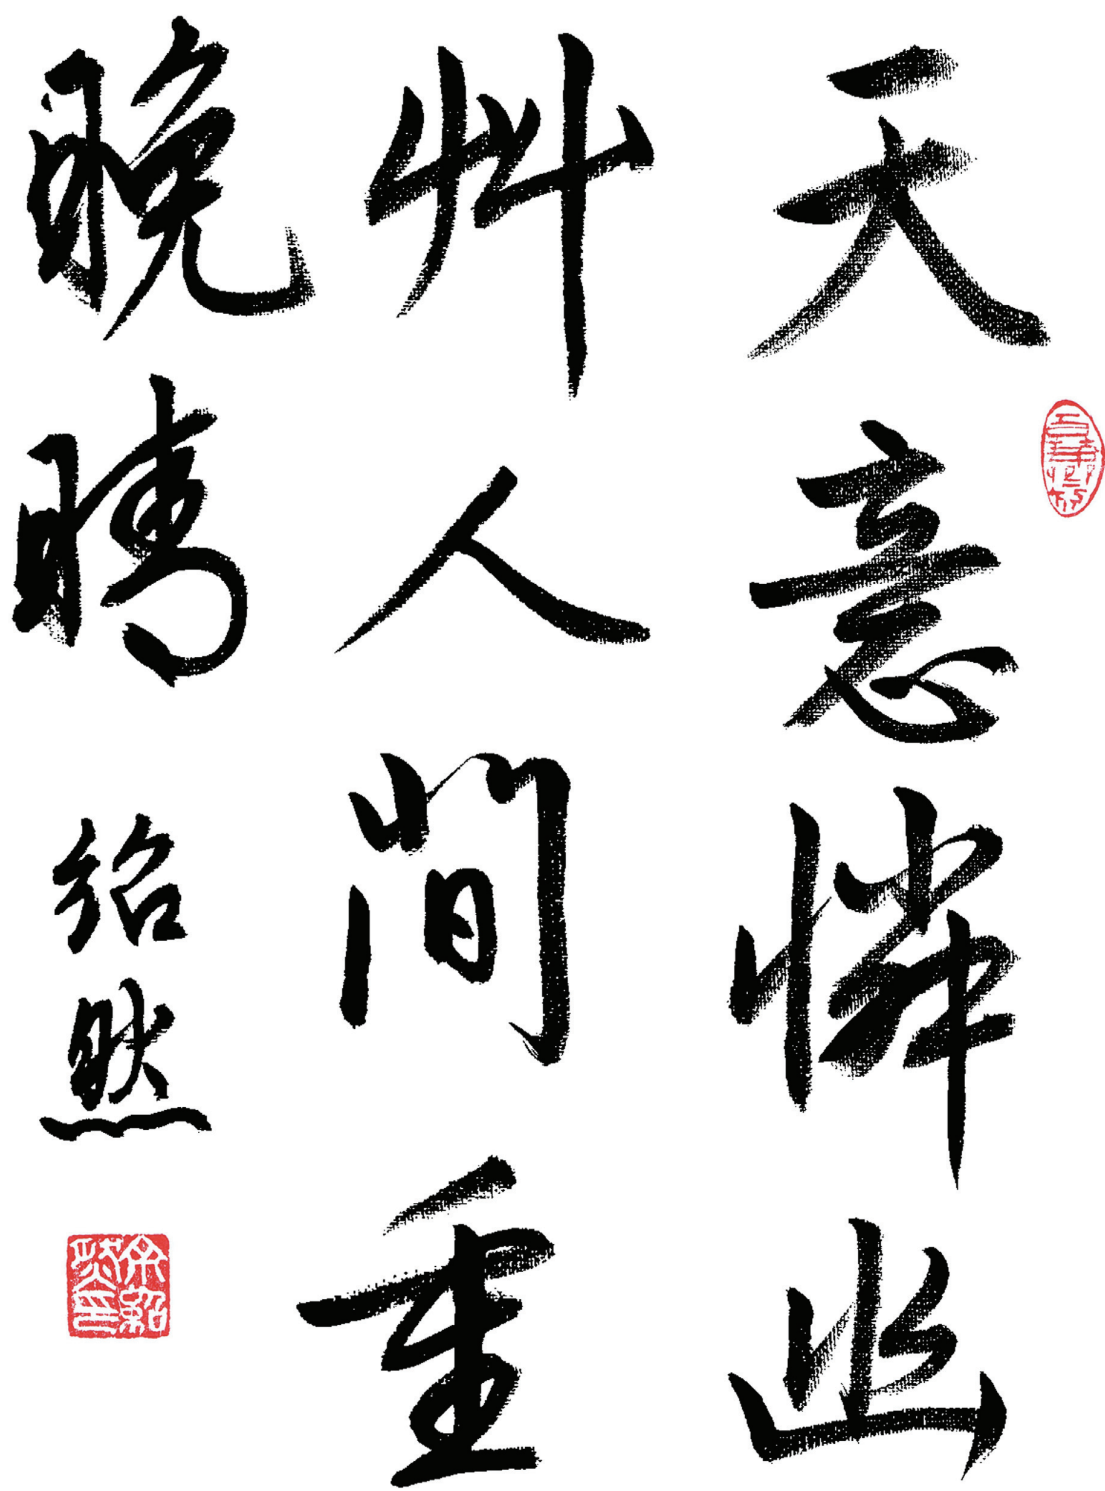 天意憐幽
艸人間重
晚晴
紹然
余紹然印